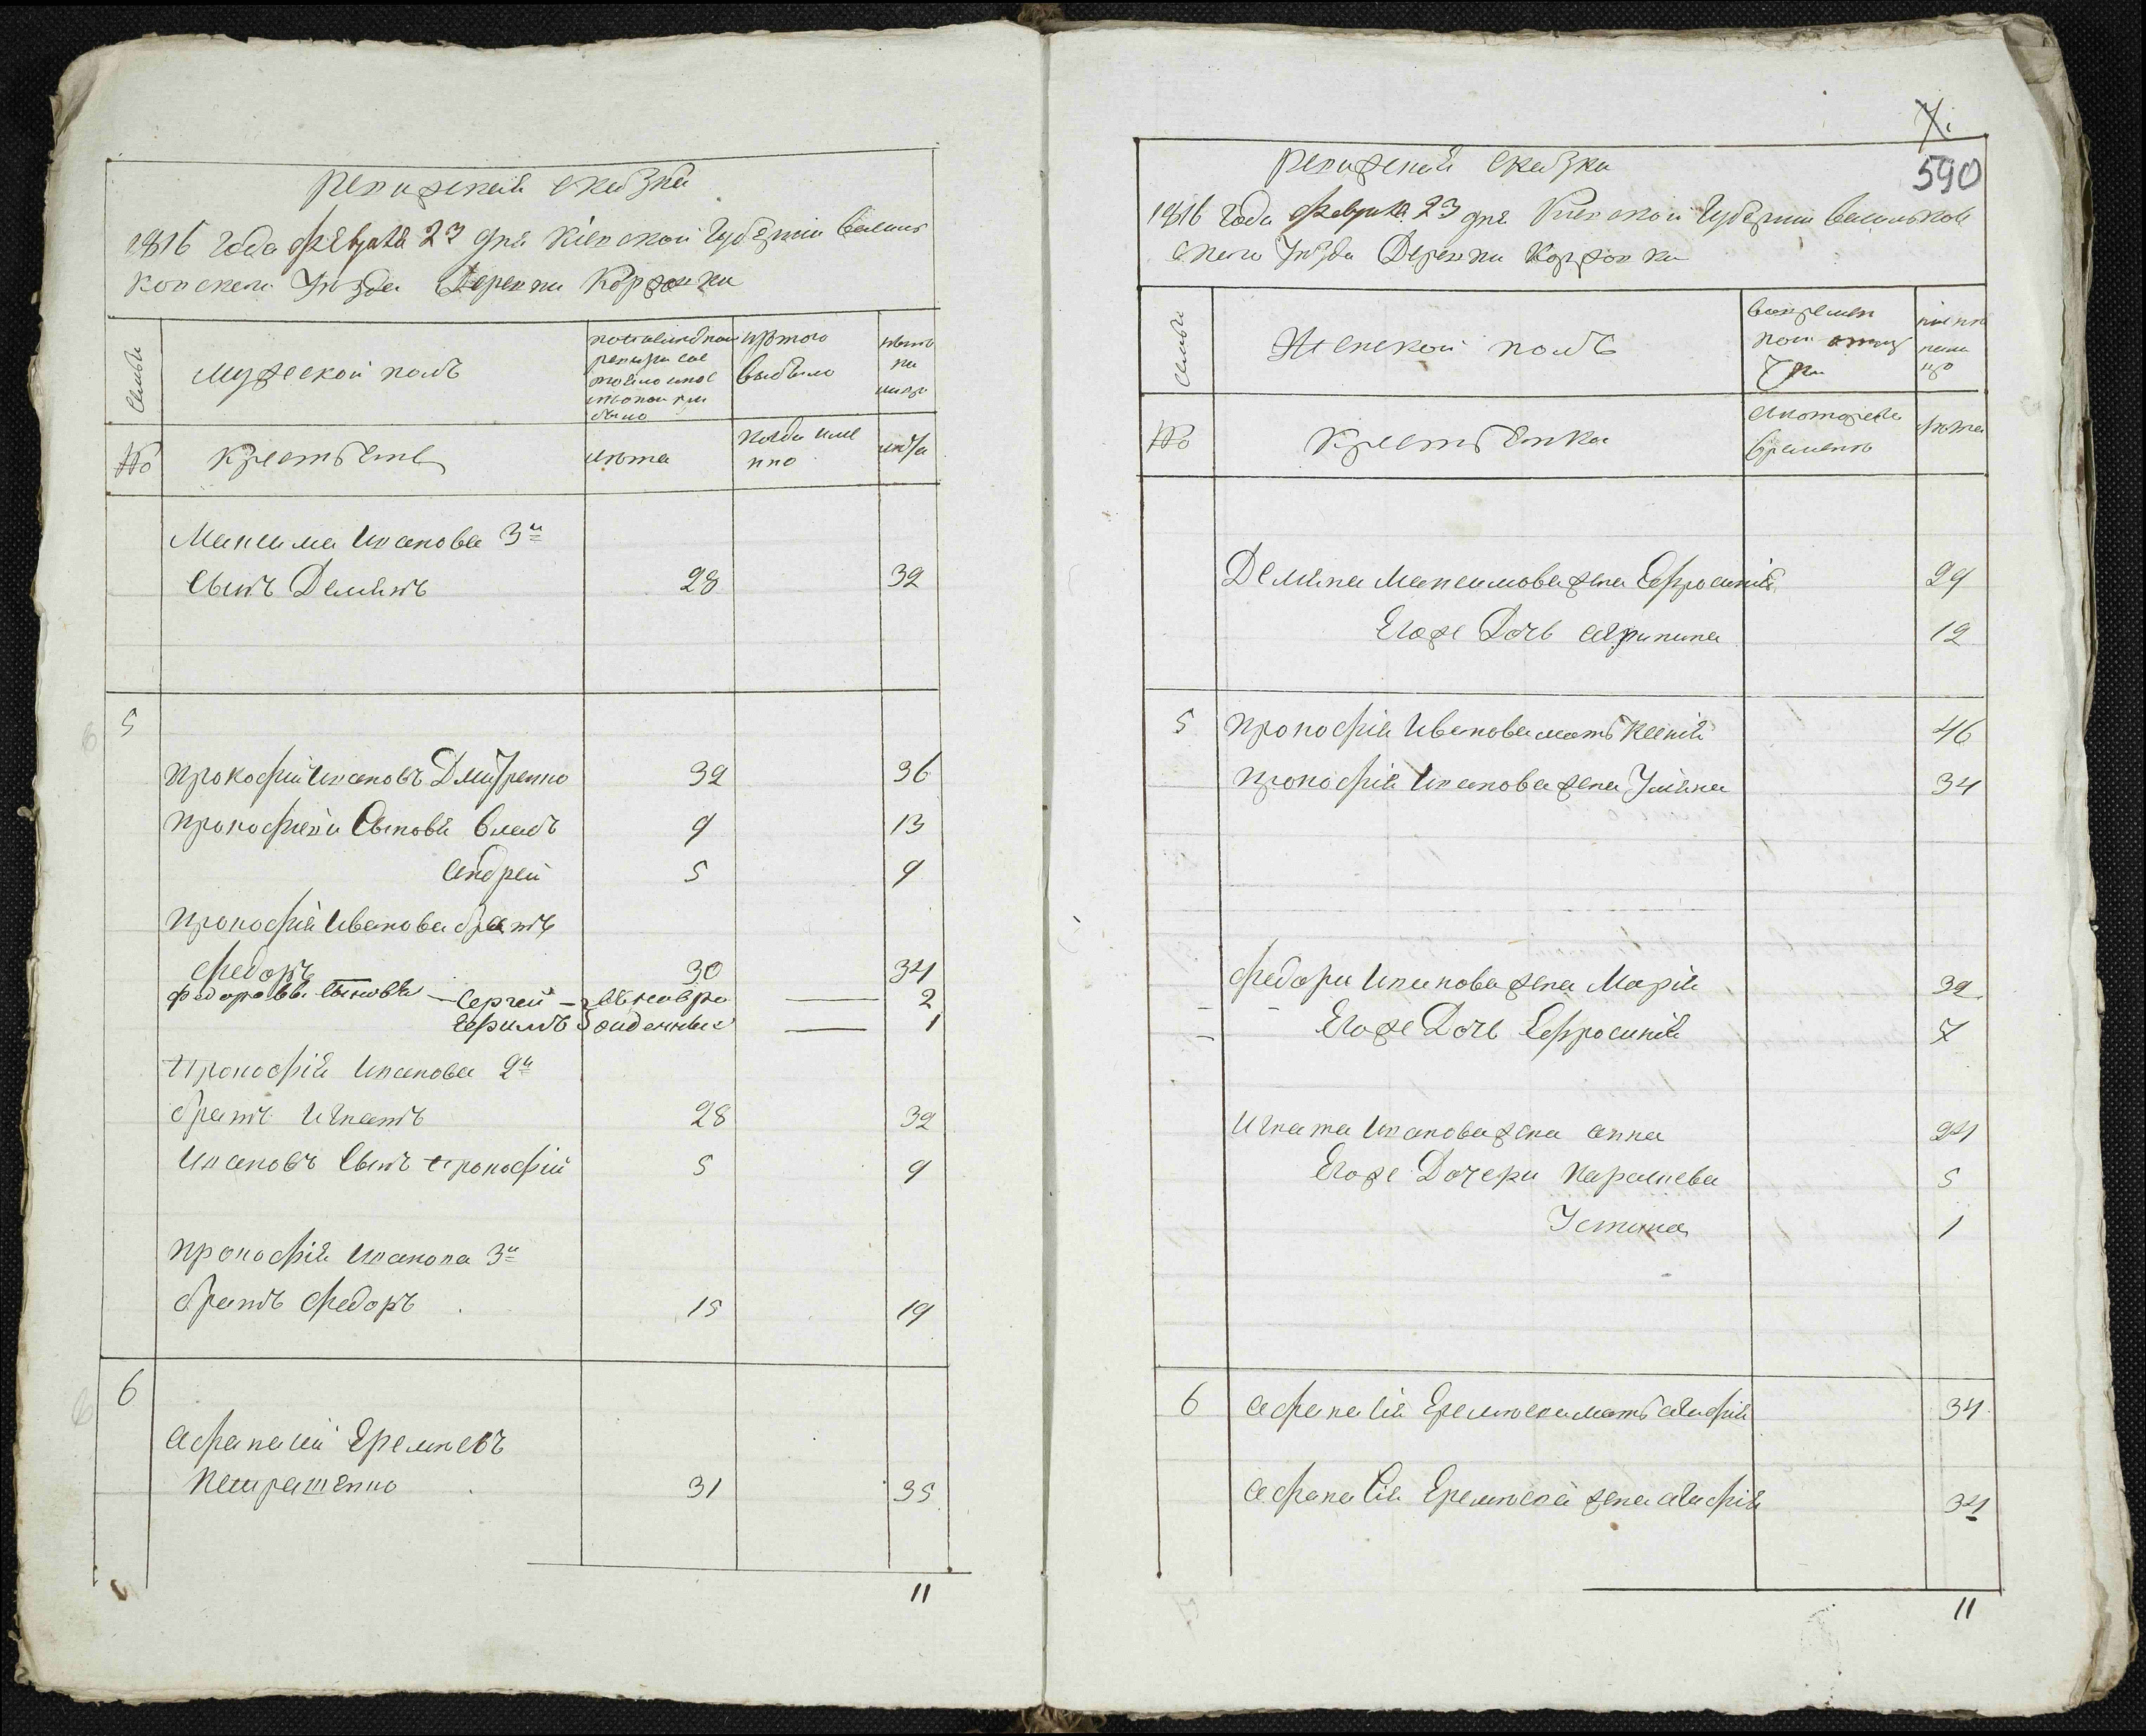 Ревизская сказка
1816 года февраля 23 дня Киевской губернии Василь
ковского уезда Деревни Коржовки
Семьи
Мужеской полъ
по последней ревизии со
стояло и после
оной при
было
изъ того
выбыло
ныне
на
лицо
№
Крестьяне
лѣта
когда име
нно
лѣта
Максима Иванова 3й
сынъ Демянъ 28 32
5
Прокофий Ивановъ Дмитренко 32 36
Прокофиевы Сыновья Власъ 9 13
Андрей 5 9
Прокофия Иванова братъ
Федоръ 30 34
Федоровы Сыновья — Сергей — 2
Ефимъ 1
Прокофия Иванова 2й
братъ Игнатъ 28 32
Ивановъ Сынъ Прокофий 5 9
Прокофия Иванова 3й
братъ Федоръ 15 19
6
Афанасий Еремеевъ
31 35
11
7.
590
Ревизская сказка
1816 года февраля 23 дня Киевской губернии Васильков
ского уезда Деревни Коржовки
Семьи
Женской полъ
во времен
ной отлу
чке
ныне
на ли
цо
№
Крестьянки
съ котораго
времени
лѣта
Демяна Максимова жена Ефросиния 29
Егоже Дочь Агрипина 12
5 Прокофия Иванова мать Ксения 46
Прокофия Иванова жена Уляна 34
Федора Иванова жена Мария 32
Егоже Дочь Ефросиния 7
Игната Иванова жена анна 24
Егоже Дочери Параскева 5
Устина 1
6 Афанасия Еремеева мать агафия 34
Афанасия Еремеева жена агафия 34
11